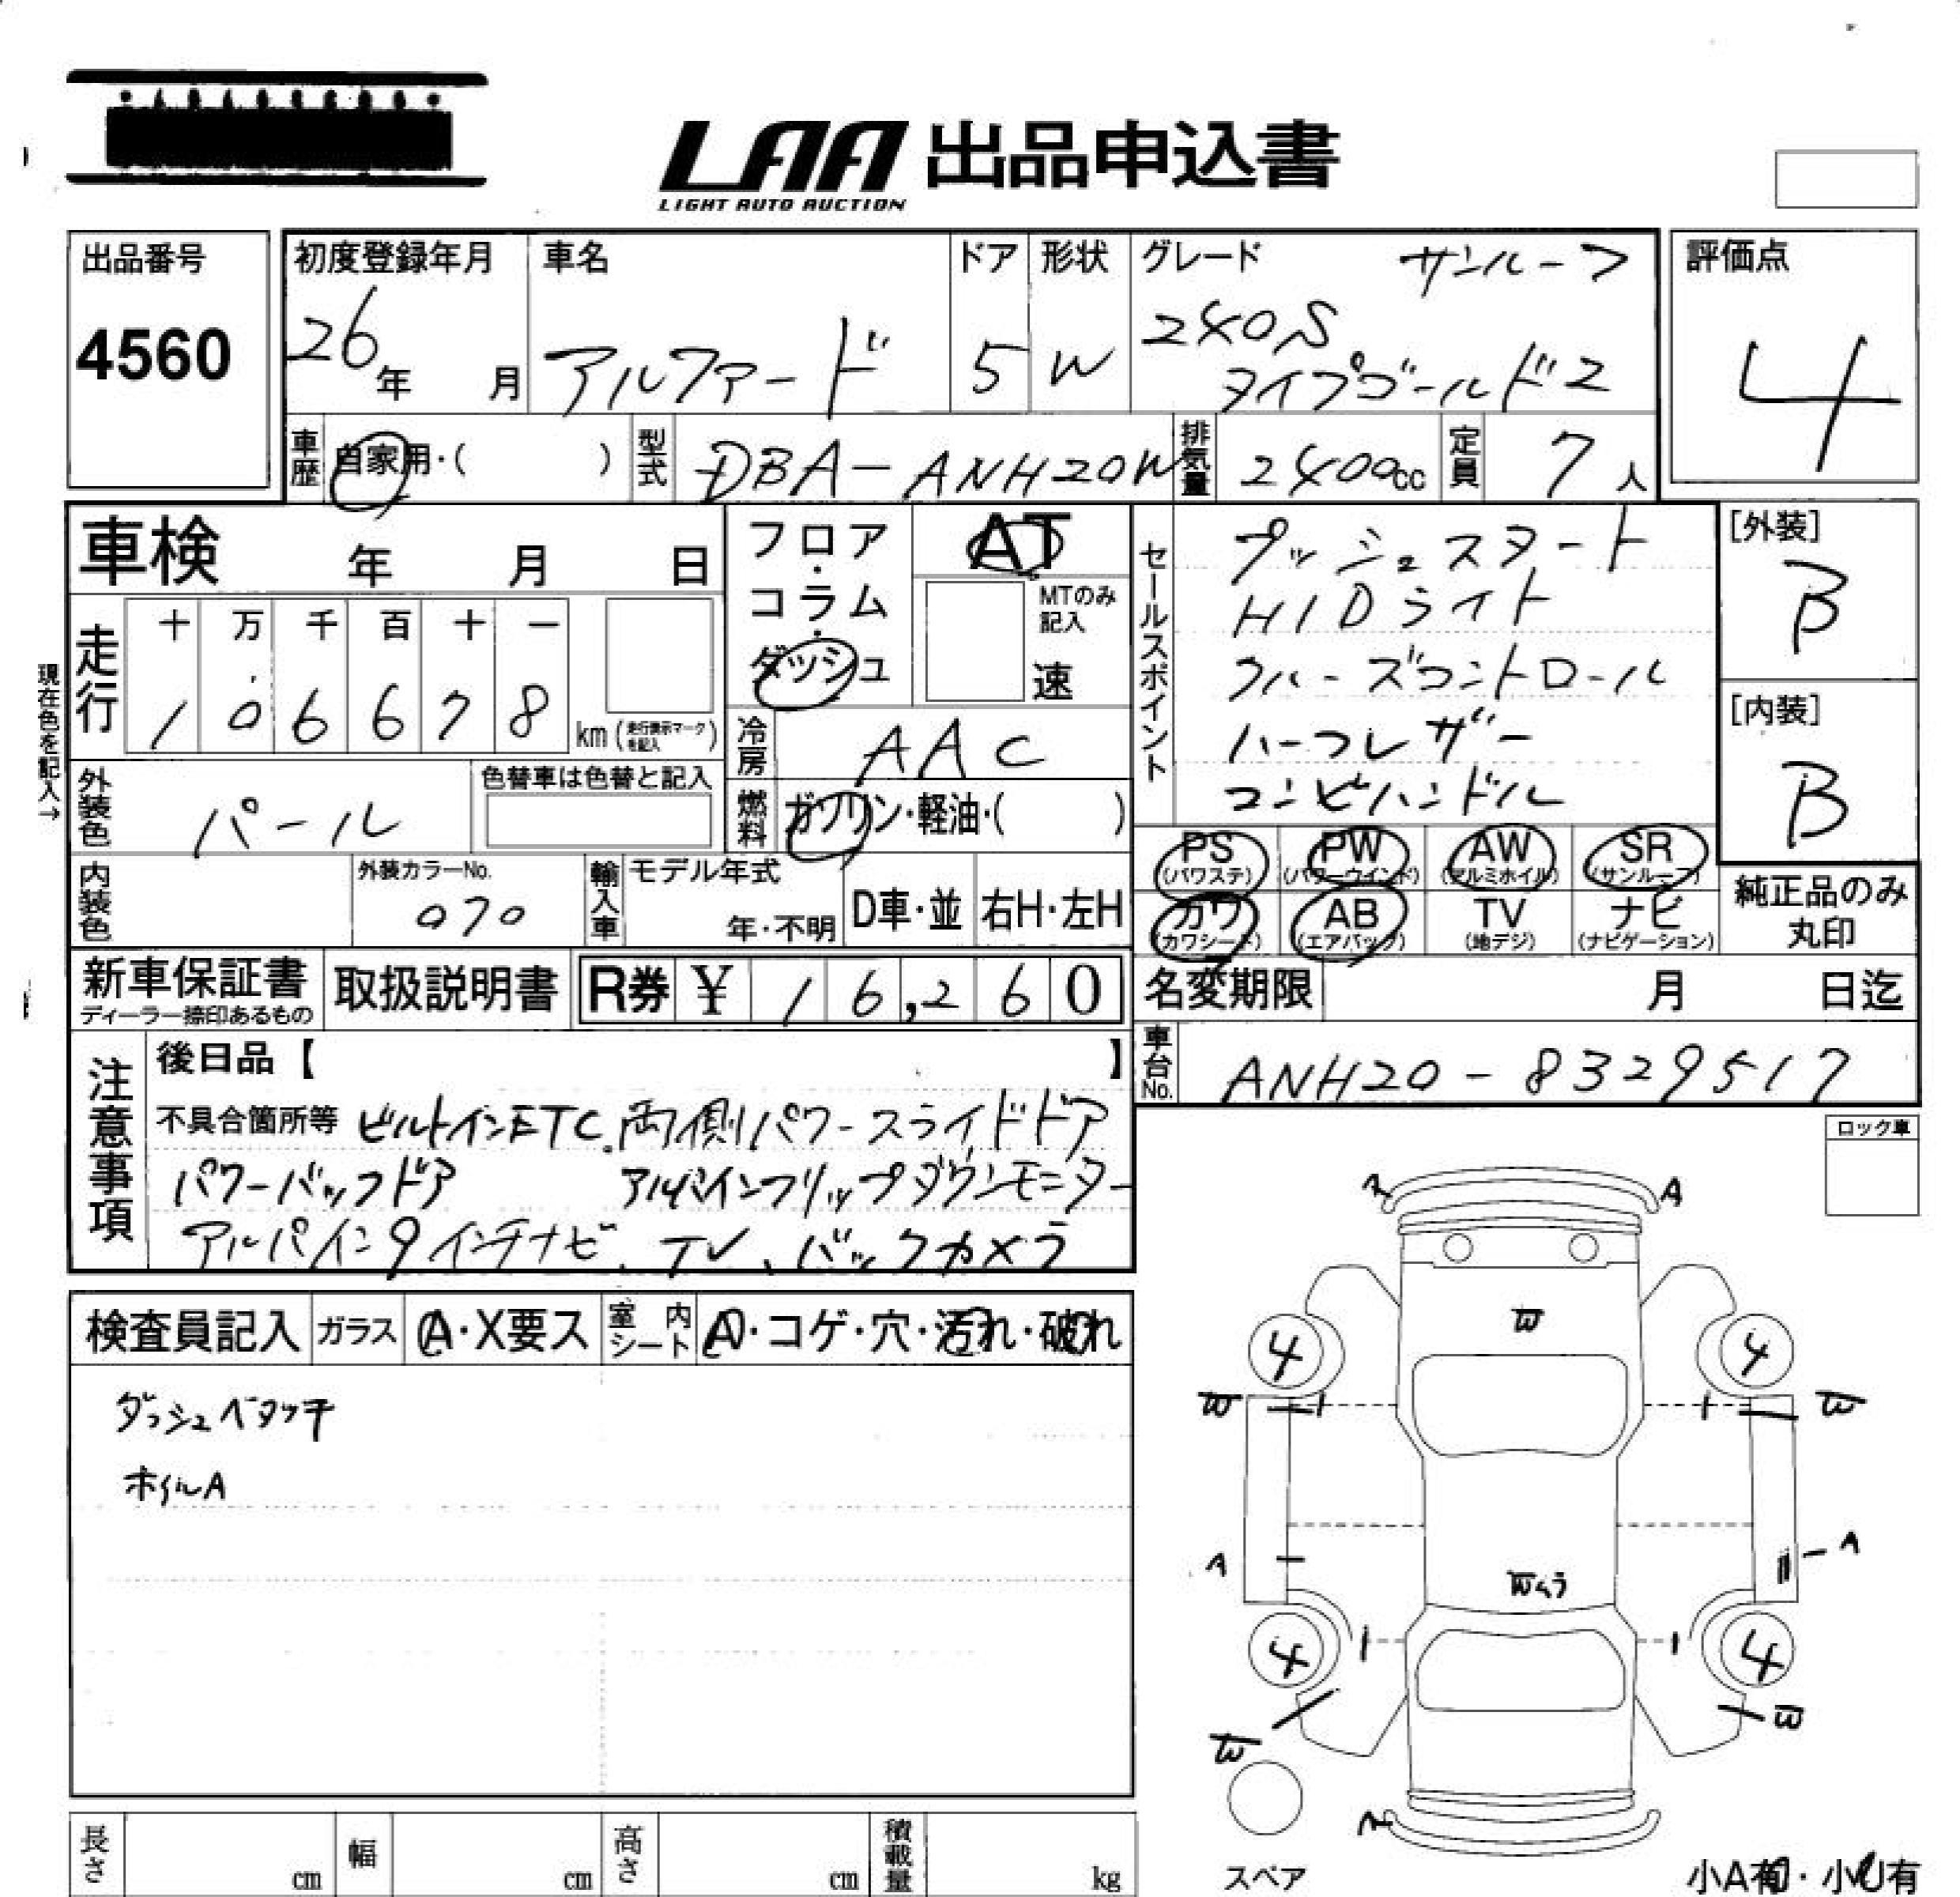 LAA 出品申込書
LIGHT AUTO AUCTION
出品番号
4560
初度登録年月
26年 月
車名
アルファード
ドア
5
形状
W
グレード サンルーフ
240S
タイプゴールド2
評価点
4
車歴 自家用・( )
型式 DBA-ANH20W
排気量 2400cc
定員 7人
車検 年 月 日
フロア・コラム・ダッシュ
AT
MTのみ記入
速
セールスポイント
プッシュスタート
HIDライト
クルーズコントロール
ハーフレザー
コンビハンドル
[外装]
B
[内装]
B
現在色を記入→
走行
十 万 千 百 十 一
1 0 6 6 7 8 km (走行表示マークを記入)
冷房 AAC
燃料 ガソリン・軽油・( )
外装色 パール
色替車は色替と記入
内装色
外装カラーNo.
070
輸入車 モデル年式
年・不明
D車・並
右H・左H
PS (パワステ)
PW (パワーウインド)
AW (アルミホイル)
SR (サンルーフ)
カワ (カワシート)
AB (エアバック)
TV (地デジ)
ナビ (ナビゲーション)
純正品のみ
丸印
新車保証書
ディーラー捺印あるもの
取扱説明書
R券 ¥ 16,260
名変期限 月 日迄
車台No. ANH20-8329517
注意事項
後日品【 】
不具合箇所等 ビルトインETC.両側パワースライドドア
パワーバックドア アルパインフリップダウンモニター
アルパイン9インチナビ、TV、バックカメラ
ロック車
検査員記入 ガラス A・X要ス 室内シート A・コゲ・穴・汚れ・破れ
ダッシュベタツキ
ホイルA
A A
W
4 4
W W
A A
Wくう
4 4
W W
A
スペア
小A有・小U有
長さ cm 幅 cm 高さ cm 積載量 kg